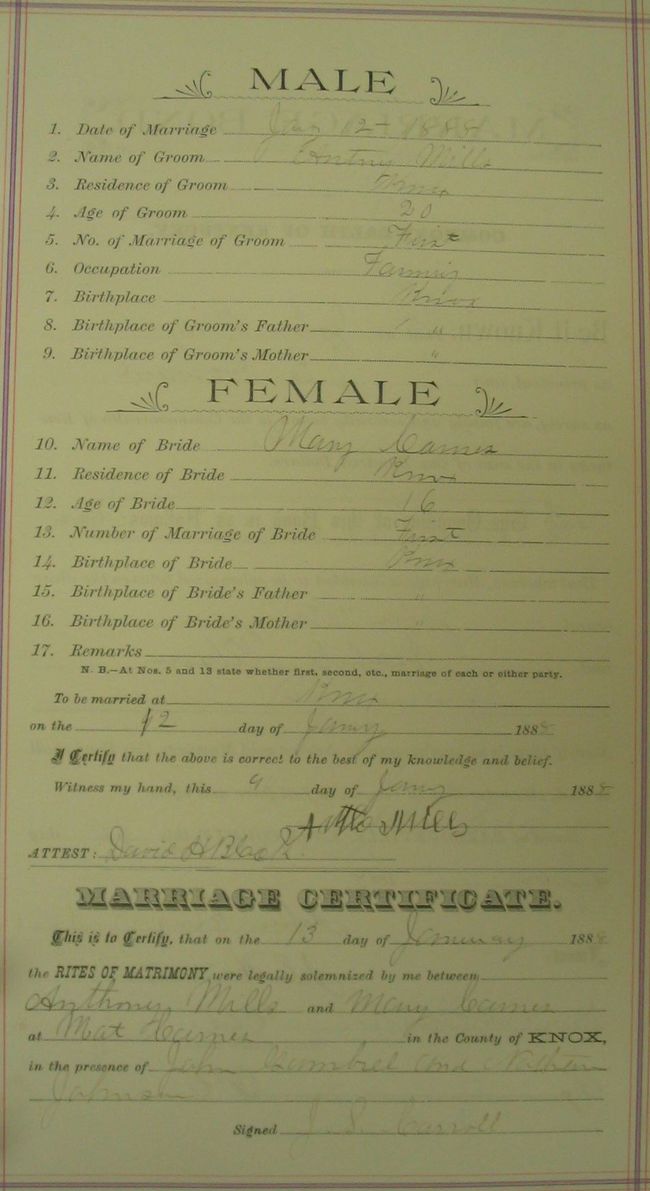 MALE
1. Date of Marriage Jany 12 - 1888
2. Name of Groom Antny Mills
3. Residence of Groom Knox
4. Age of Groom 20
5. No. of Marriage of Groom First
6. Occupation Farming
7. Birthplace Knox
8. Birthplace of Groom's Father "
9. Birthplace of Groom's Mother "
FEMALE
10. Name of Bride Mary Carnes
11. Residence of Bride Knox
12. Age of Bride 16
13. Number of Marriage of Bride First
14. Birthplace of Bride Knox
15. Birthplace of Bride's Father "
16. Birthplace of Bride's Mother "
17. Remarks
N. B.—At Nos. 5 and 13 state whether first, second, etc., marriage of each or either party.
To be married at Knox
on the 12 day of Jany 1888
I Certify that the above is correct to the best of my knowledge and belief.
Witness my hand, this 9 day of Jany 1888
Mills
ATTEST: David H Black
MARRIAGE CERTIFICATE.
This is to Certify, that on the 13 day of January 1888
the RITES OF MATRIMONY were legally solemnized by me between
Anthony Mills and Mary Carnes
at Mat Carnes in the County of KNOX,
in the presence of John Gambrel and Nathan
Johnson
Signed J. S. Carroll